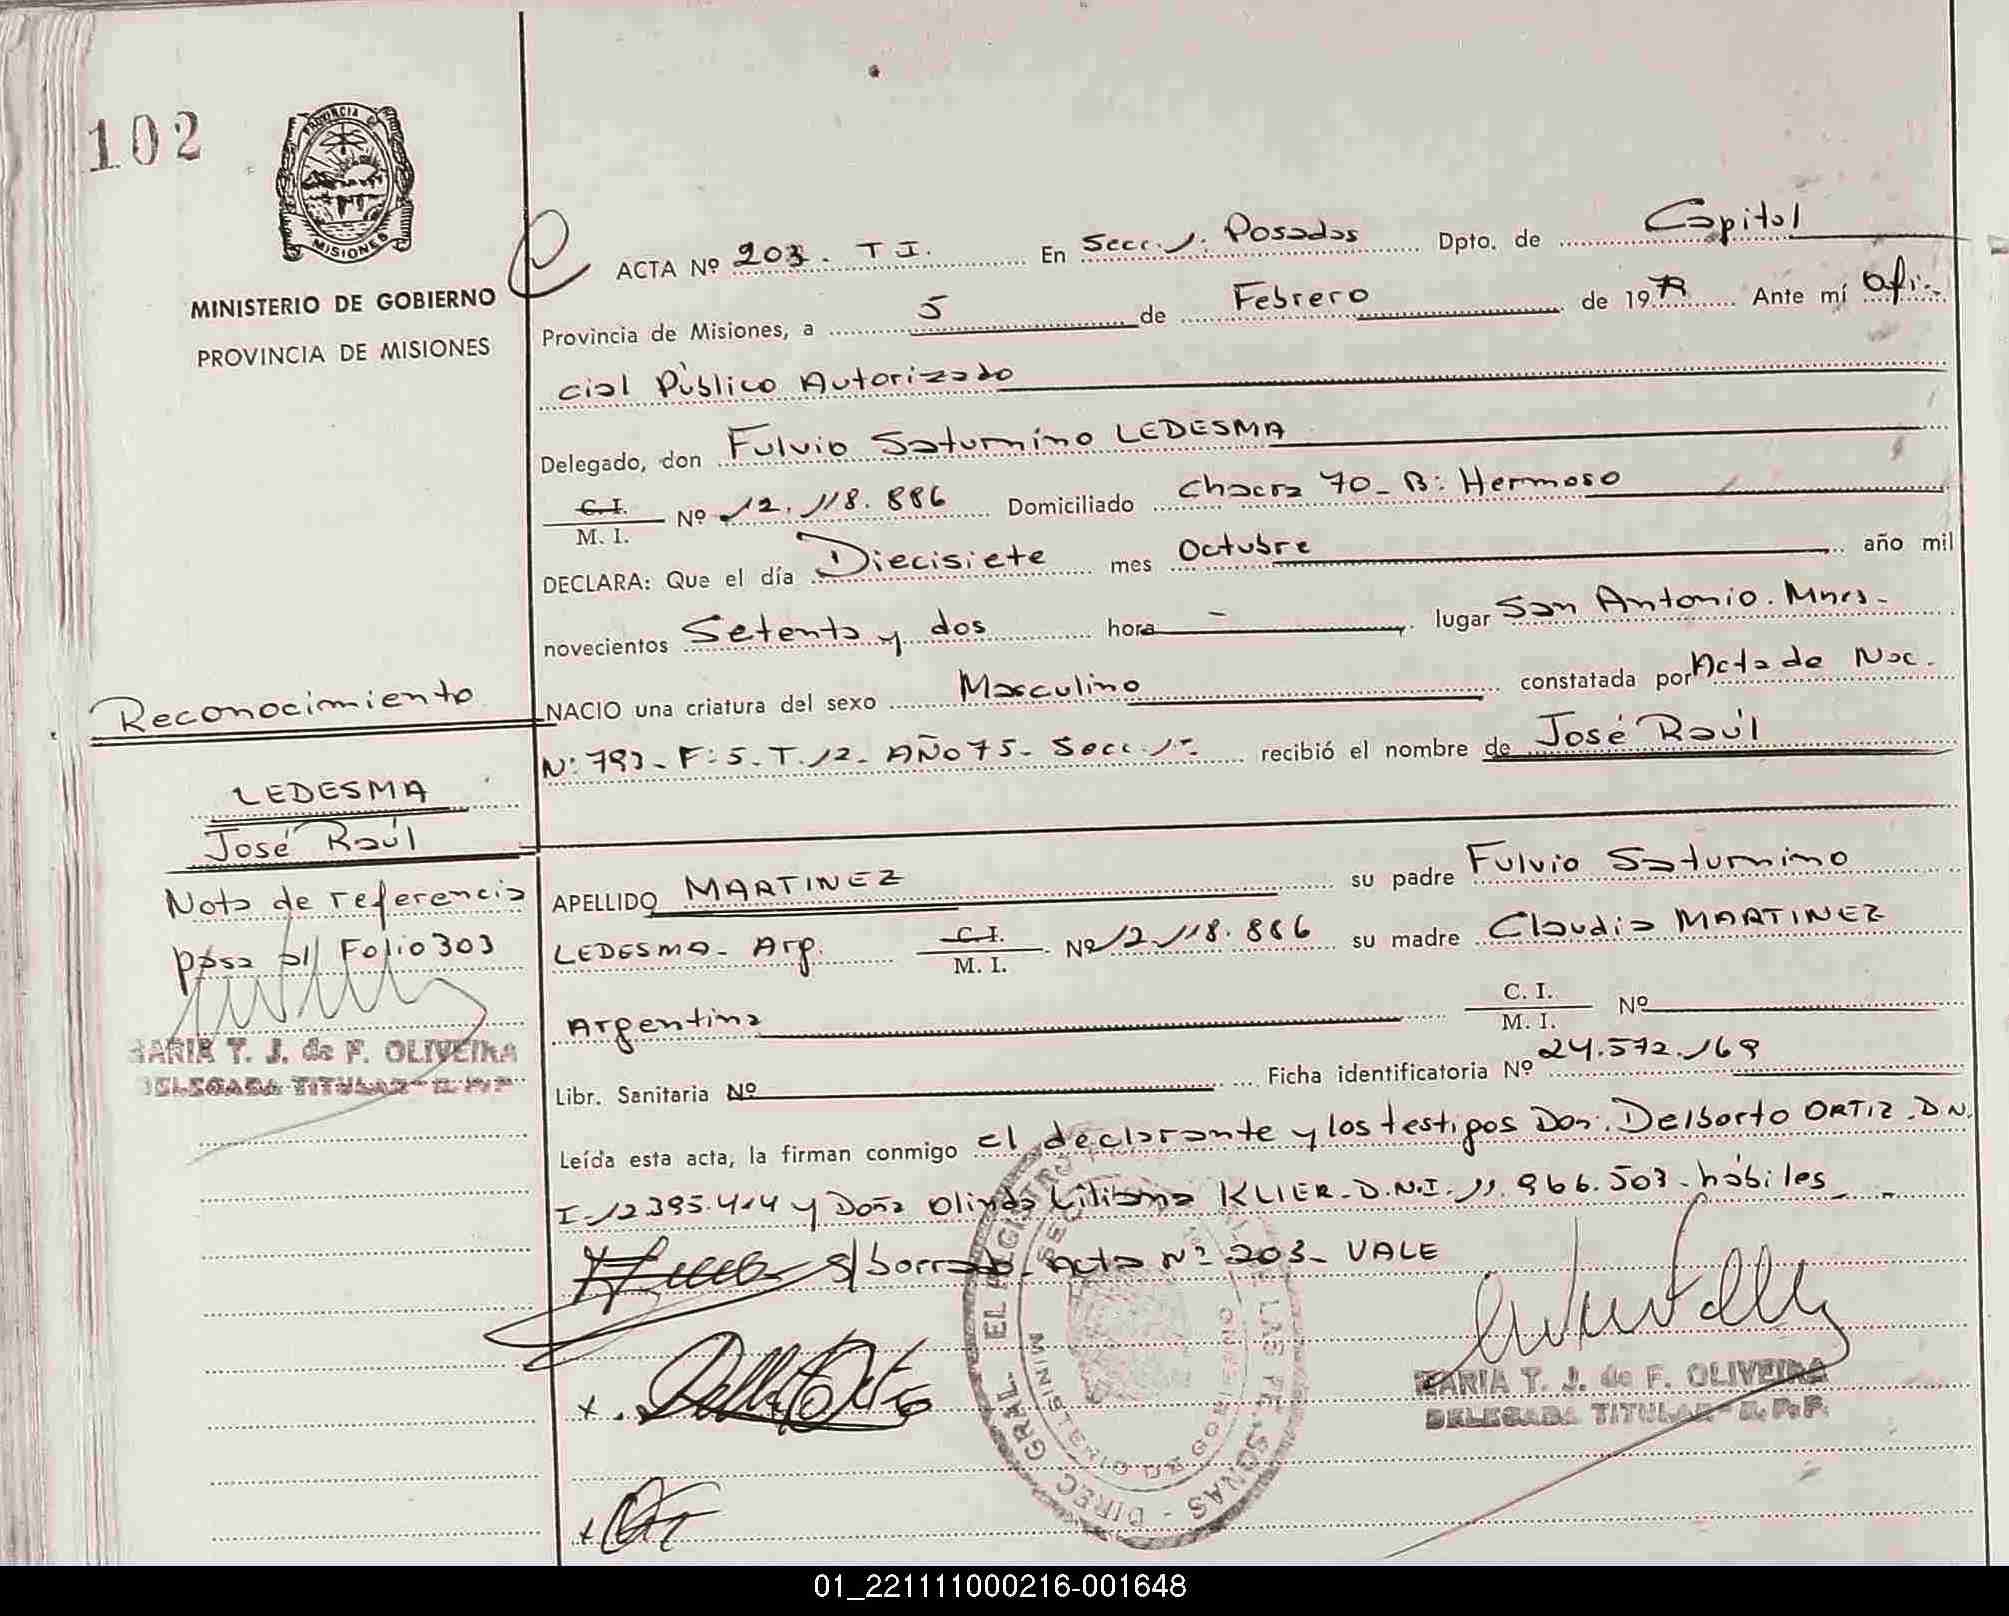 102
PROVINCIA DE
MISIONES
MINISTERIO DE GOBIERNO
PROVINCIA DE MISIONES
ACTA Nº 203. T I. En Secc. 1. Posadas Dpto. de Capital
Provincia de Misiones, a 5 de Febrero de 19 Ante mí Ofi-
cial Público Autorizado
Delegado, don Fulvio Saturnino LEDESMA
C. I.
M. I. Nº 12.118.886 Domiciliado Chacra 70 - B: Hermoso
DECLARA: Que el día Diecisiete mes Octubre año mil
novecientos Setenta y dos hora - lugar San Antonio. Mnes-
NACIO una criatura del sexo Masculino constatada por Acta de Nac.
Nº: 793 - F: 5 - T. 12 - AÑO 75 - Secc. 1ª recibió el nombre de José Raúl
APELLIDO MARTINEZ su padre Fulvio Saturnino
LEDESMA - Arg. C. I.
M. I. Nº 12.118.886 su madre Claudia MARTINEZ
Argentina C. I.
M. I. Nº
Libr. Sanitaria Nº Ficha identificatoria Nº 24.572.169
Leída esta acta, la firman conmigo el declarante y los testigos Don: Delborto ORTIZ. D.N.
I. 12.395.414 y Doña Olinda Liliana KLIER - D.N.I. 11.966.503 - hábiles
s/borrado - Acta Nº 203 - VALE
Reconocimiento
LEDESMA
José Raúl
Nota de referencia
pasa al Folio 303
MARIA T. J. de F. OLIVEIRA
DELEGADA TITULAR - R. P. P.
MARIA T. J. de F. OLIVEIRA
DELEGADA TITULAR - R. P. P.
01_221111000216-001648